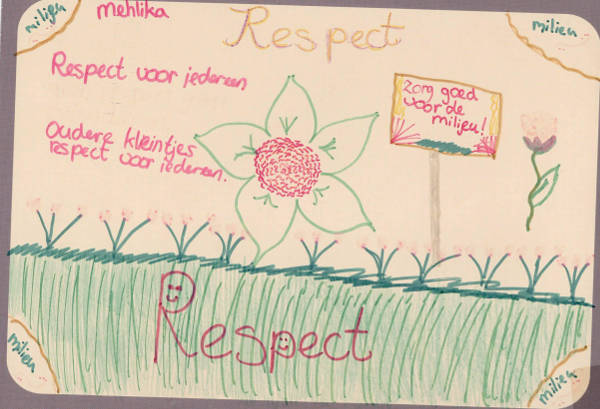 milieu
mehlika
Respect
milieu
Respect voor iedereen
zorg goed
voor de
milieu!
Oudere kleintjes
respect voor iedereen.
Respect
milieu
milieu